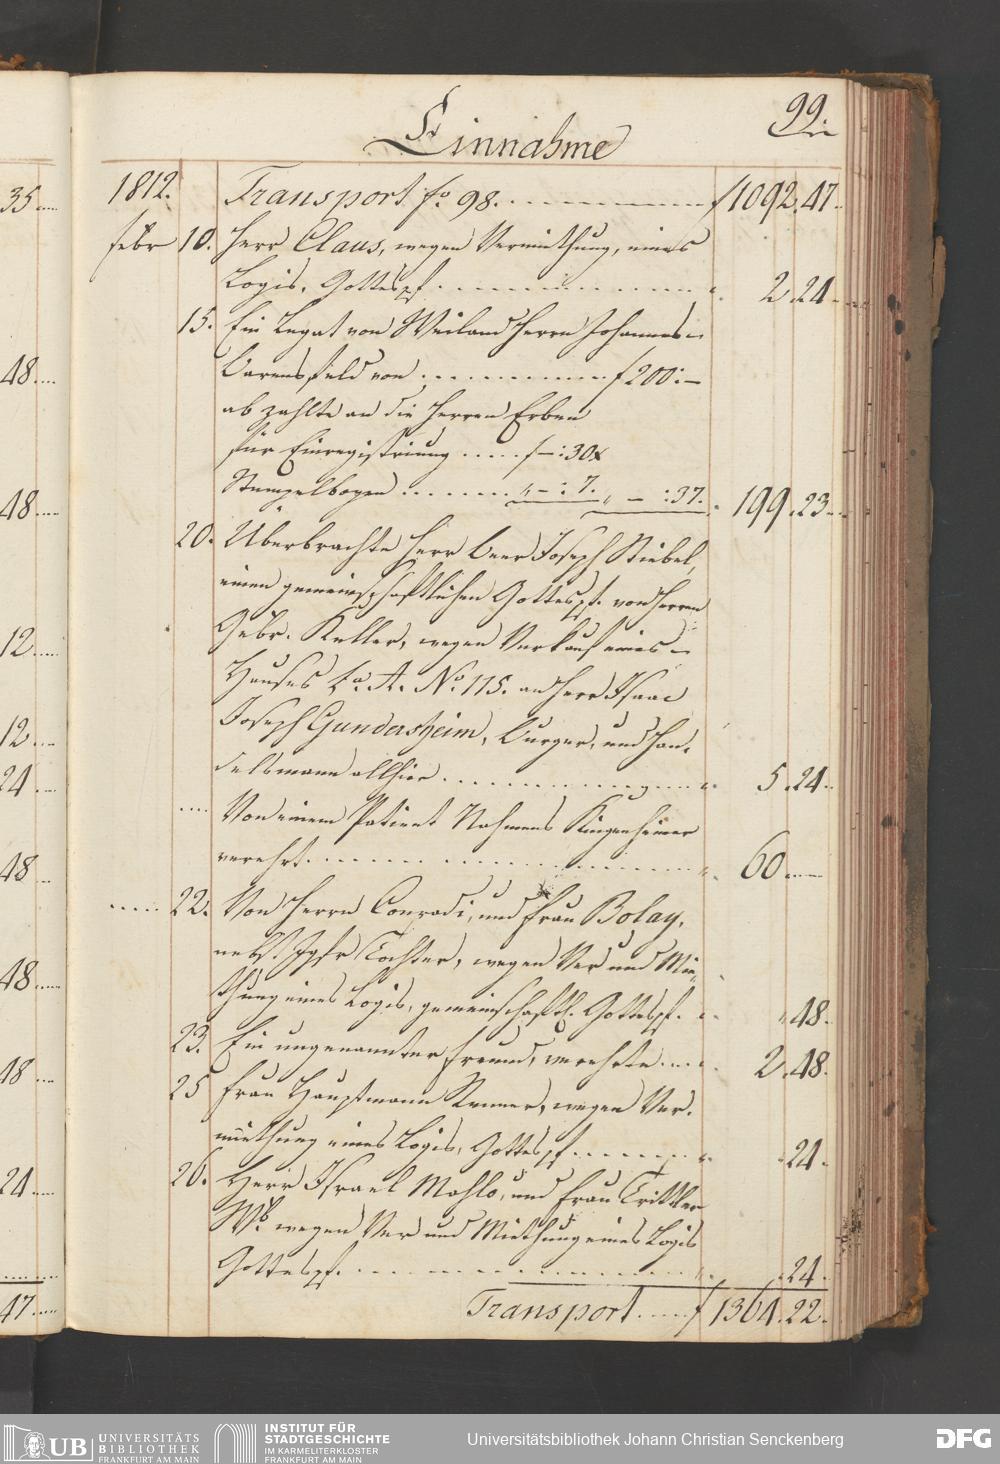 99.
Einnahme
1812. Transport fo. 98. f 1092.47.
febr 10. Herr Claus, wegen Vermiethung, eines
Logis, Gottespf. " 2.24
15. Ein Legat von Weiland Herrn Johannes
Barensfeld von f 200:—
ab zahlte an die Herren Erben
für Einregistriung f —:30x
Stempelbogen "—:7. " —:37. " 199.23
20. Überbrachte Herr Beer Joseph Stiebel,
einen gemeinschaftlichen Gottespf. von Herren
Gebr. Keller, wegen Verkauf eines
Hauses La. A. No. 115. an Herr Isaac
Joseph Gundersheim, Burger, und Han-
delsmann allhier " 5.24
Von einem Patient Nahmens Kingenheimer
verehrt " 60
22. Von Herrn Conradi, und Frau Bolay,
nebst Jgfr Tochter, wegen Ver und Mie-
thung eines Logis, gemeinschaftl. Gottespf. " 48.
23. Ein ungenannter Freund, verehrte " 2.48.
25 Frau Hauptmann Renner, wegen Ver-
miethung eines Logis, Gottespf. " .24.
26. Herr Israel Mahlo, und Frau Trittler
Wb. wegen Ver und Miethung eines Logis
Gottespf. " .24.
Transport f 1364.22.
35
48
48
12
12
24
48
48
48
24
47
UB UNIVERSITÄTS
BIBLIOTHEK
FRANKFURT AM MAIN
INSTITUT FÜR
STADTGESCHICHTE
IM KARMELITERKLOSTER
FRANKFURT AM MAIN
Universitätsbibliothek Johann Christian Senckenberg
DFG